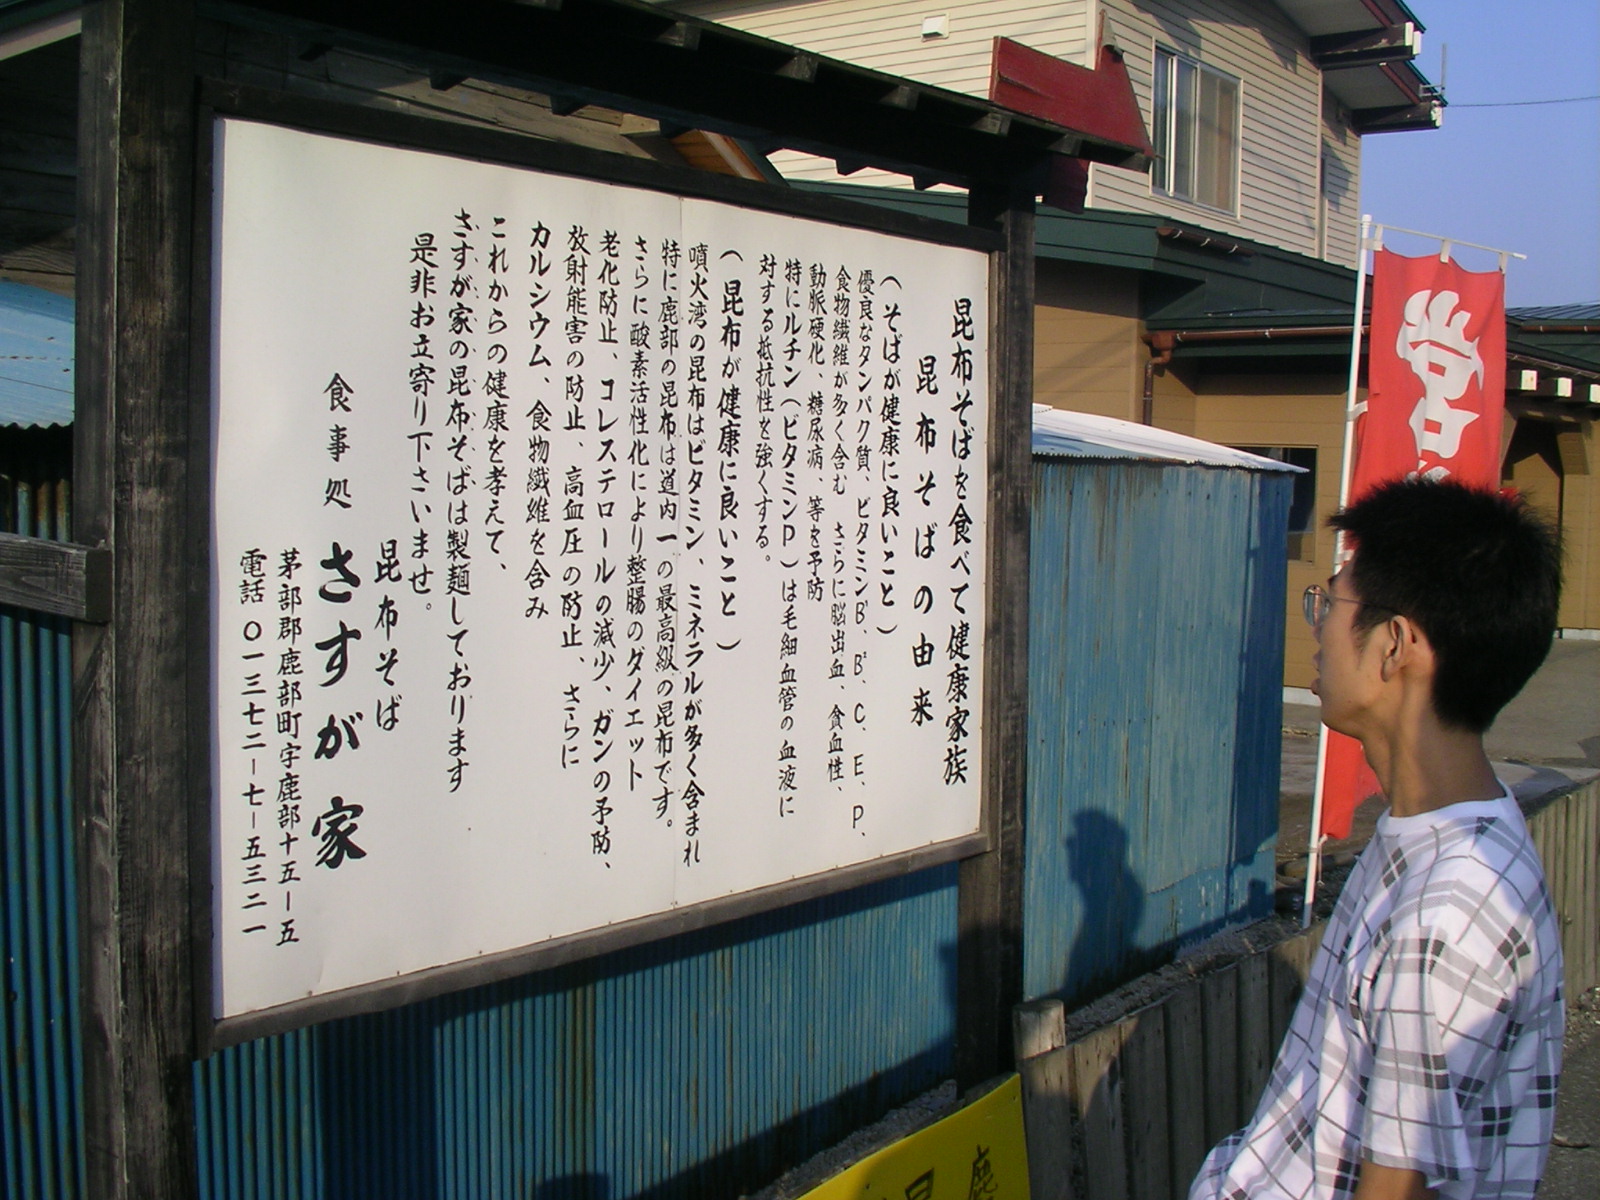 昆布そばを食べて健康家族
昆布そばの由来
(そばが健康に良いこと)
優良なタンパク質、ビタミンB¹、B²、C、E、P、
食物繊維が多く含む さらに脳出血、貧血性、
動脈硬化、糖尿病、等を予防
特にルチン(ビタミンP)は毛細血管の血液に
対する抵抗性を強くする。
(昆布が健康に良いこと)
噴火湾の昆布はビタミン、ミネラルが多く含まれ
特に鹿部の昆布は道内一の最高級の昆布です。
さらに酸素活性化により整腸のダイエット
老化防止、コレステロールの減少、ガンの予防、
放射能害の防止、高血圧の防止、さらに
カルシウム、食物繊維を含み
これからの健康を考えて、
さすが家の昆布そばは製麺しております
是非お立寄り下さいませ。
昆布そば
食事処 さすが家
茅部郡鹿部町字鹿部十五ー五
電話 〇一三七二ー七ー五三二一
営
鹿
昆